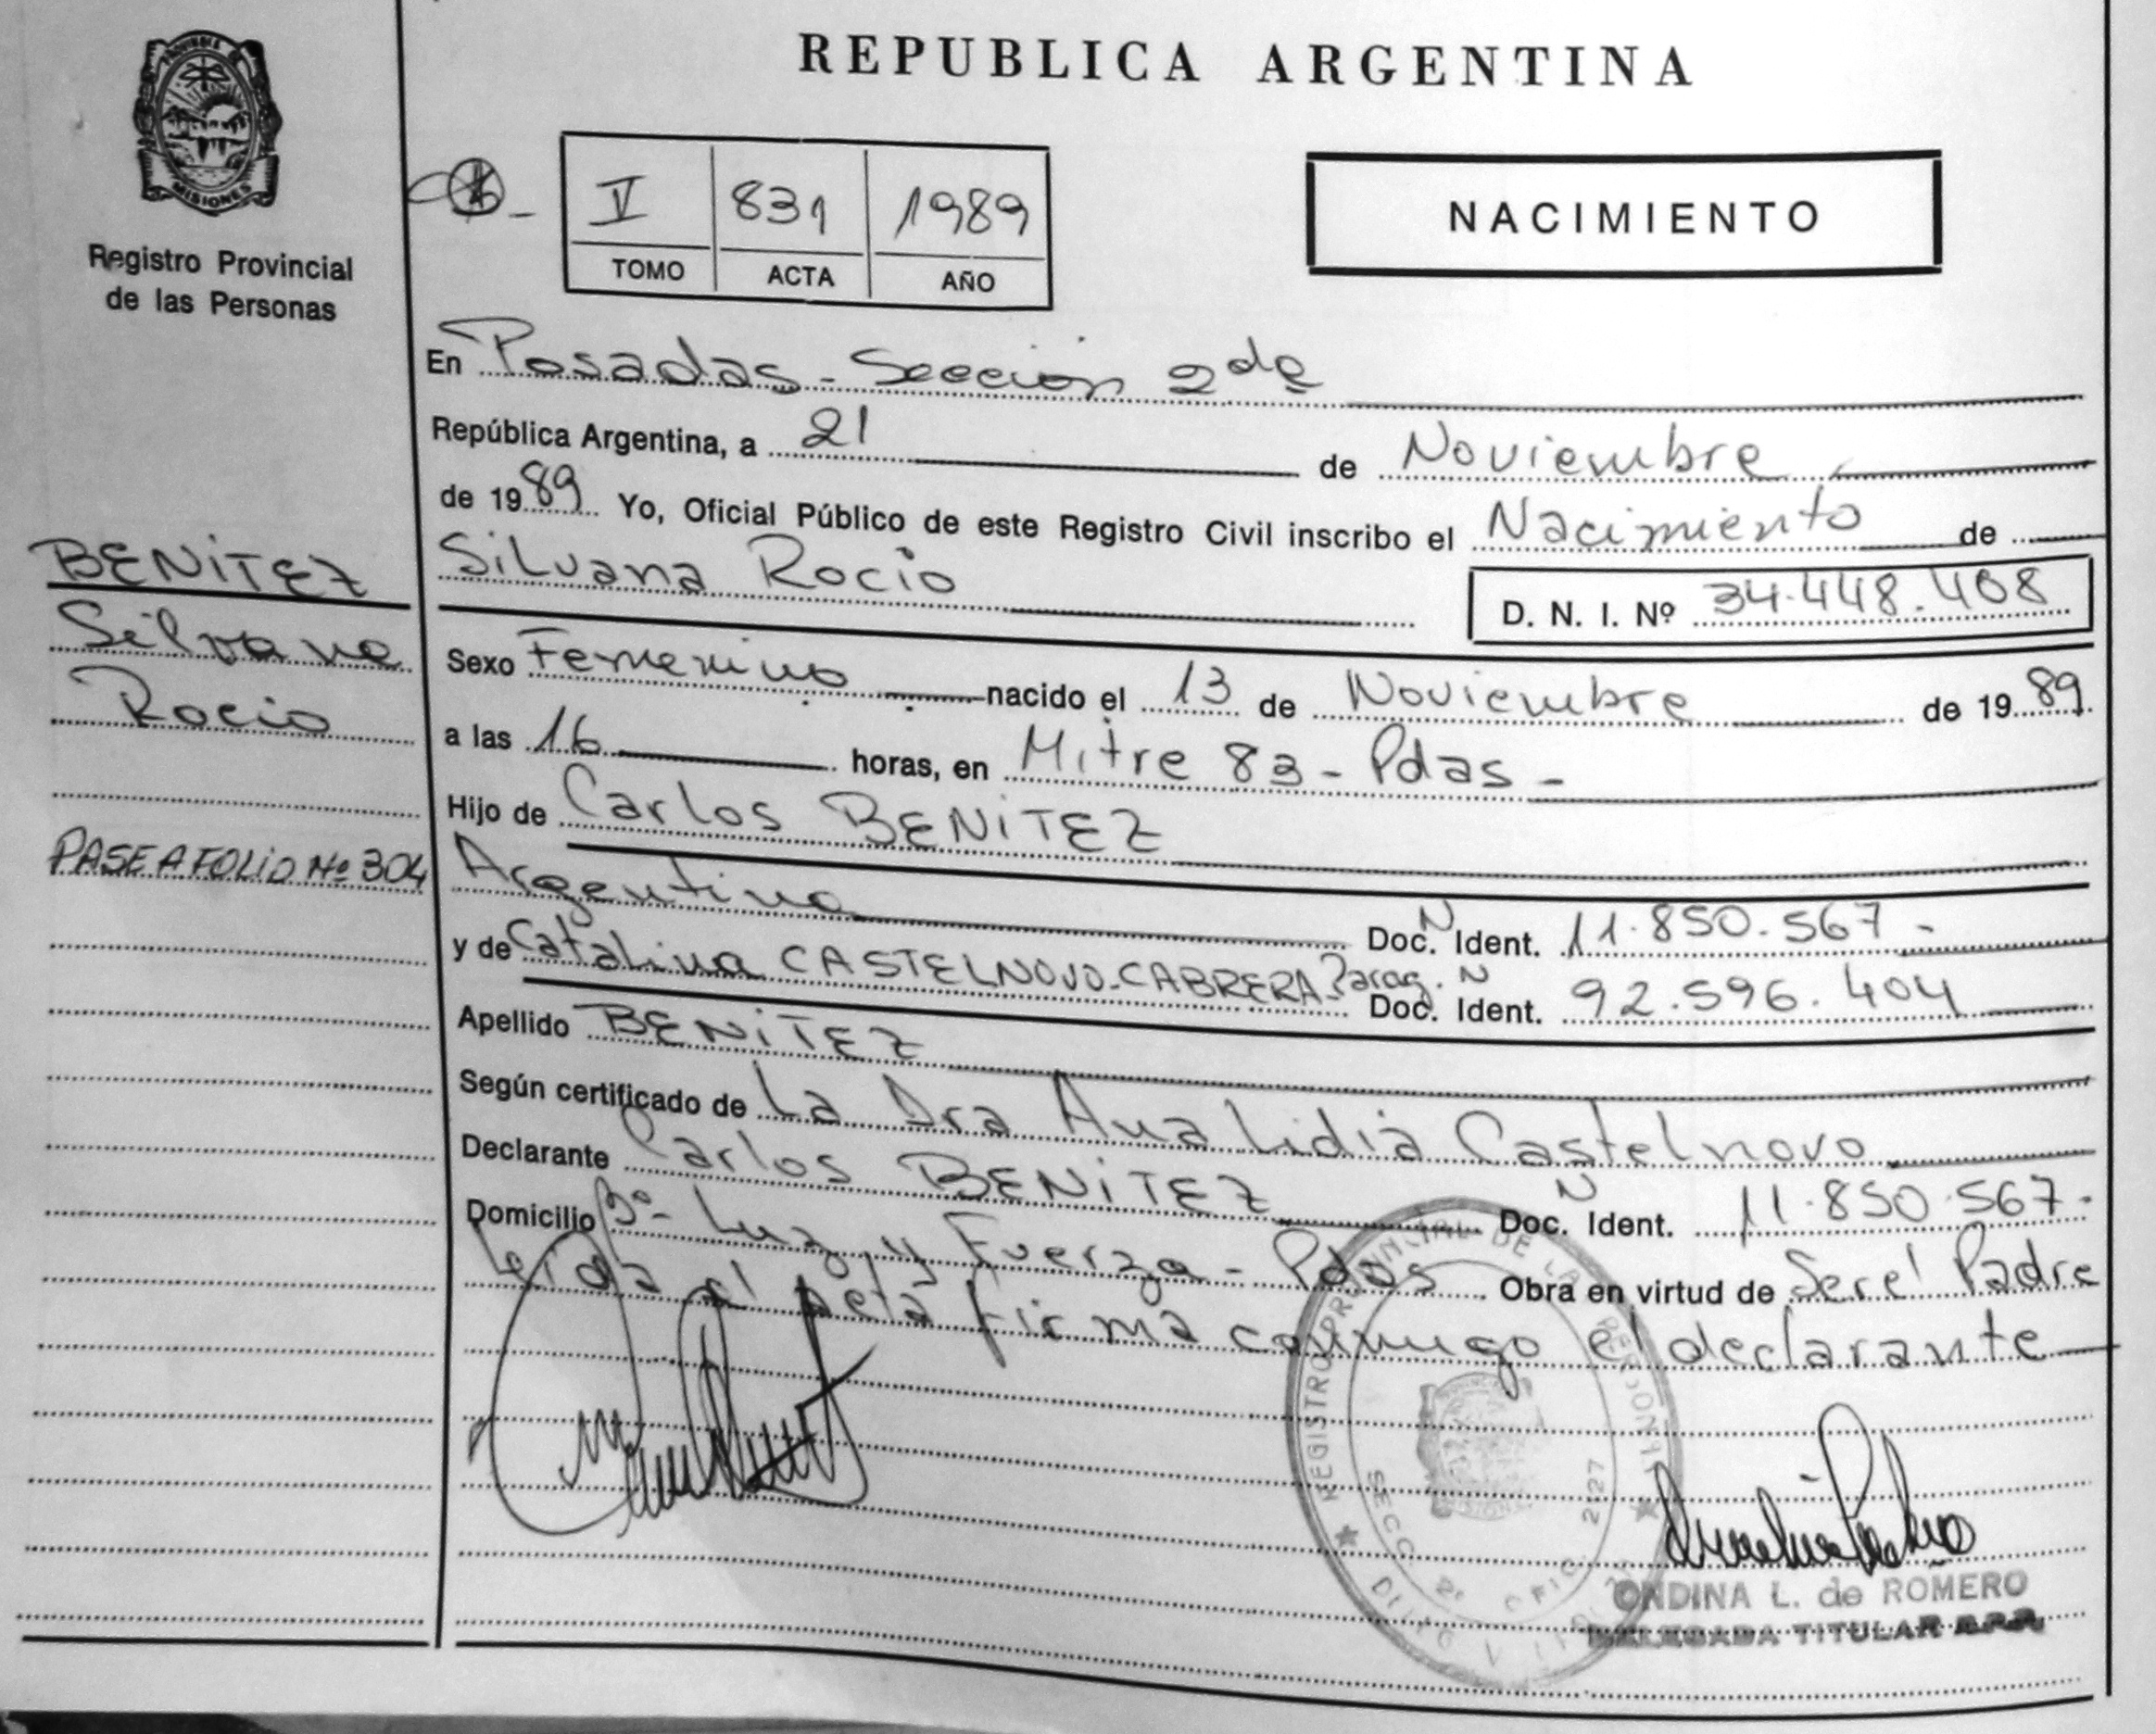 PROVINCIA DE
MISIONES
Registro Provincial
de las Personas
BENITEZ
Silvana
Rocio
PASE A FOLIO Nº 304
REPUBLICA ARGENTINA
V 831 1989
TOMO ACTA AÑO
NACIMIENTO
En Posadas - Sección 2da
República Argentina, a 21 de Noviembre
de 1989 Yo, Oficial Público de este Registro Civil inscribo el Nacimiento de
Silvana Rocio
D. N. I. Nº 34.448.408
Sexo Femenino nacido el 13 de Noviembre de 1989
a las 16 horas, en Mitre 83 - Pdas -
Hijo de Carlos BENITEZ
Argentino Doc. N Ident. 11.850.567 -
y de Catalina CASTELNOVO-CABRERA - Parag. Doc. N Ident. 92.596.404
Apellido BENITEZ
Según certificado de La Dra Ana Lidia Castelnovo
Declarante Carlos BENITEZ Doc. N Ident. 11.850.567.
Domicilio Bº - Luz y Fuerza - Pdas Obra en virtud de Ser el Padre
Leída el Acta firma conmigo el declarante
REGISTRO PROVINCIAL DE LAS PERSONAS
SECC 2º OFIC 2127
ONDINA L. de ROMERO
DELEGADA TITULAR R.P.P.